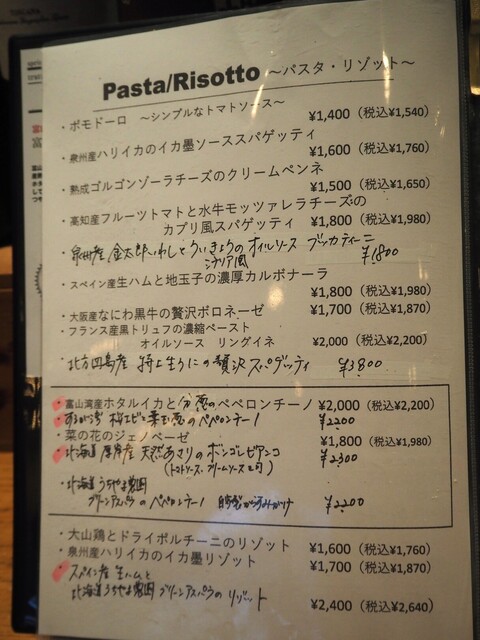 Pasta/Risotto ～パスタ・リゾット～
・ポモドーロ ～シンプルなトマトソース～
¥1,400（税込¥1,540）
・泉州産ハリイカのイカ墨ソーススパゲッティ
¥1,600（税込¥1,760）
・熟成ゴルゴンゾーラチーズのクリームペンネ
¥1,500（税込¥1,650）
・高知産フルーツトマトと水牛モッツァレラチーズの
カプリ風スパゲッティ ¥1,800（税込¥1,980）
・泉州産 金太郎いわしとういきょうのオイルソース ブッカティーニ
シチリア風 ¥1800
・スペイン産生ハムと地玉子の濃厚カルボナーラ
¥1,800（税込¥1,980）
・大阪産なにわ黒牛の贅沢ボロネーゼ ¥1,700（税込¥1,870）
・フランス産黒トリュフの濃縮ペースト
オイルソース リングイネ ¥2,000（税込¥2,200）
・北方四島産 特上生うにの贅沢スパゲッティ ¥3800
・富山湾産ホタルイカと分葱のペペロンチーノ ¥2,000（税込¥2,200）
・するが湾 桜エビと葉玉葱のペペロンチーノ ¥2200
・菜の花のジェノベーゼ ¥1,800（税込¥1,980）
・北海道 厚岸産 天然あさりのボンゴレビアンコ ¥2300
（トマトソース、クリームソースも可）
・北海道 うちやま農園
グリーンアスパラのペペロンチーノ ¥2200
・大山鶏とドライポルチーニのリゾット ¥1,600（税込¥1,760）
・泉州産ハリイカのイカ墨リゾット ¥1,700（税込¥1,870）
・スペイン産 生ハムと
北海道うちやま農園 グリーンアスパラのリゾット
¥2,400（税込¥2,640）